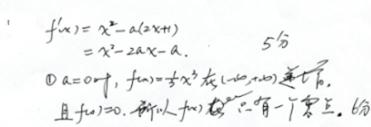 f'(x) = x² - a(2x+1)
= x² - 2ax - a. 5分
① a=0时, f(x)=⅓x³在(-∞,+∞)递增.
且f(0)=0. 所以f(x)只有一个零点. 6分